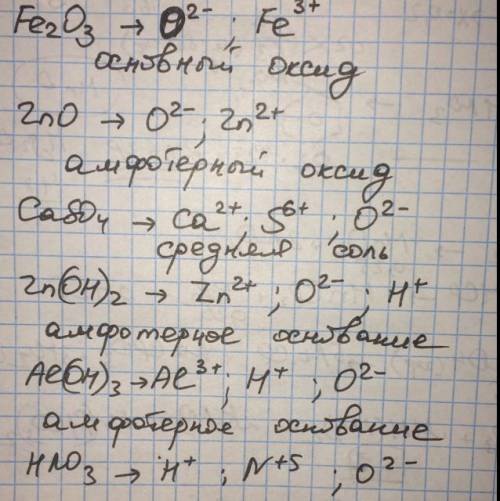 Fe₂O₃ → O²⁻ ; Fe³⁺
основный оксид
ZnO → O²⁻ ; Zn²⁺
амфотерный оксид
CaSO₄ → Ca²⁺ ; S⁶⁺ ; O²⁻
средняя соль
Zn(OH)₂ → Zn²⁺ ; O²⁻ ; H⁺
амфотерное основание
Al(OH)₃ → Al³⁺ ; H⁺ ; O²⁻
амфотерное основание
HNO₃ → H⁺ ; N⁺⁵ ; O²⁻